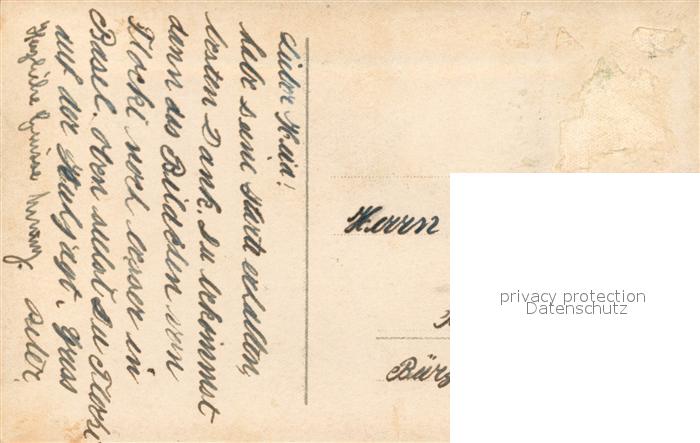 Lieber Heid!
habe deine Karte erhalten,
besten Dank. Du bekommst
dann das Bildchen von
Flocki noch besser in
Basel. Oben siehst Du Flocki
auf der Jagd. Gruss
Peter.
Herzliche Grüsse
Herrn
Bürg
privacy protection
Datenschutz